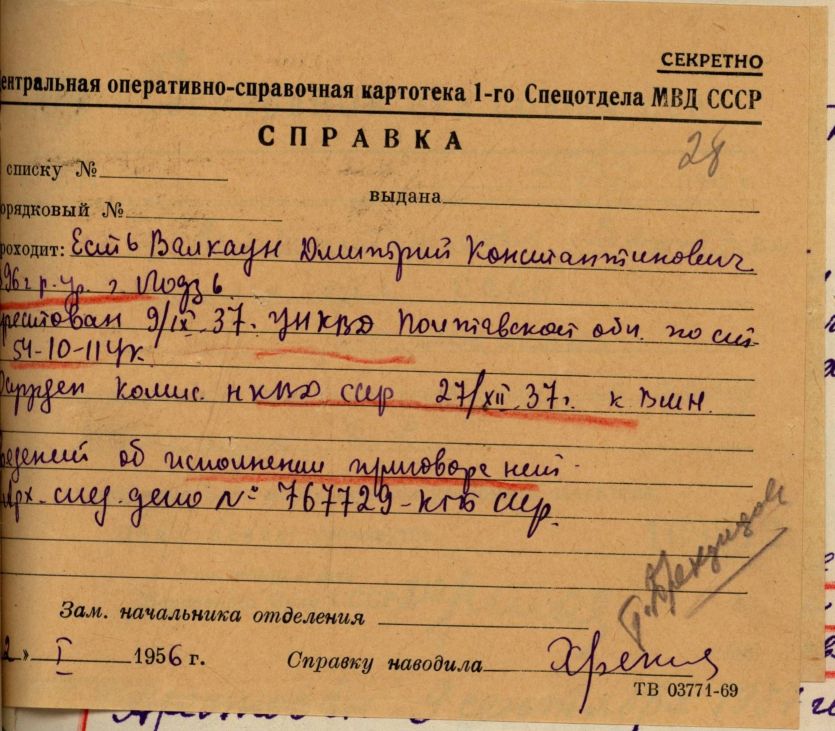 СЕКРЕТНО
ентральная оперативно-справочная картотека 1-го Спецотдела МВД СССР
СПРАВКА
28
списку №
выдана
орядковый №
роходит: Есть Валкаун Дмитрий Константинович
896 г.р. ур. г. Лодзь
рестован 9/IX.37г. УНКВД Полтавской обл. по ст.
54-10-11 УК
Осужден Комис. НКВД СССР 27/XII.37г. к ВМН.
ведений об исполнении приговора нет.
Арх. след. дело № 767729 - КГБ СССР.
Зам. начальника отделения
2 » I 1956 г.
Справку наводила
ТВ 03771-69